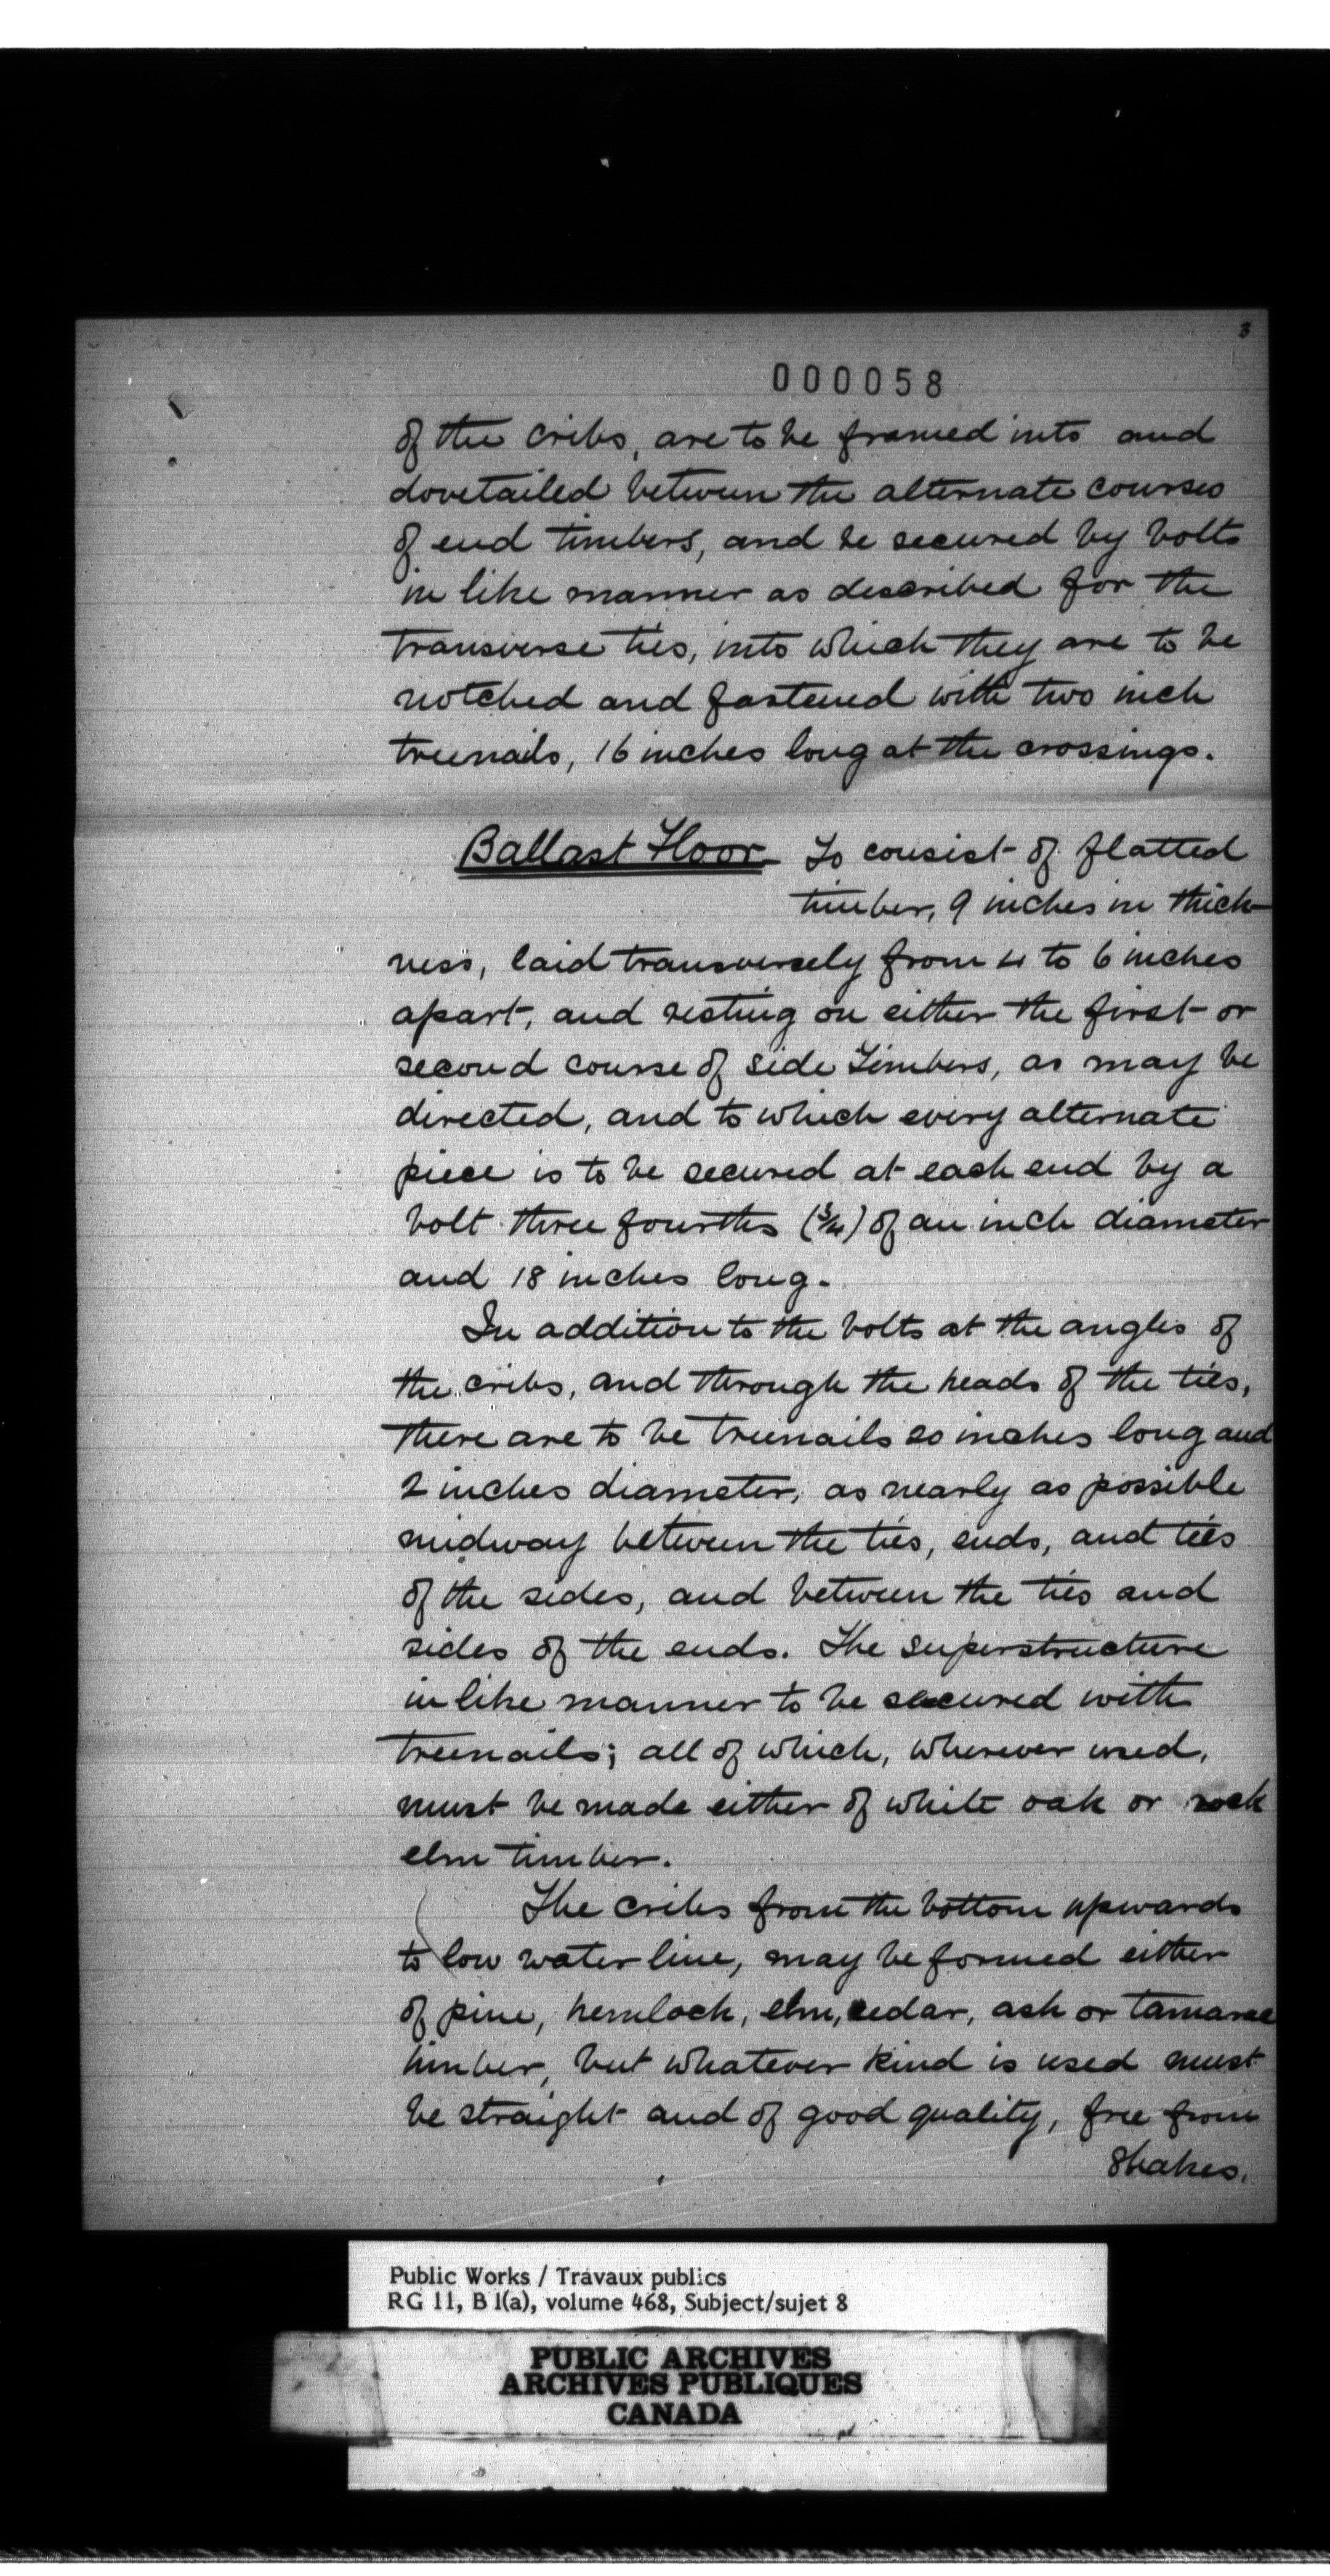 3
000058
of the cribs, are to be framed into and
dovetailed between the alternate courses
of end timbers, and be secured by bolts
in like manner as described for the
transverse ties, into which they are to be
notched and fastened with two inch
treenails, 16 inches long at the crossings.
Ballast Floor To consist of flatted
timber, 9 inches in thick-
ness, laid transversely from 4 to 6 inches
apart, and resting on either the first or
second course of side timbers, as may be
directed, and to which every alternate
piece is to be secured at each end by a
bolt three fourths (3/4) of an inch diameter
and 18 inches long.
In addition to the bolts at the angles of
the cribs, and through the heads of the ties,
there are to be treenails 20 inches long and
2 inches diameter, as nearly as possible
midway between the ties, ends, and ties
of the sides, and between the ties and
sides of the ends. The superstructure
in like manner to be secured with
treenails; all of which, wherever used,
must be made either of white oak or rock
elm timber.
The cribs from the bottom upwards
to low water line, may be formed either
of pine, hemlock, elm, cedar, ash or tamarac
timber, but whatever kind is used must
be straight and of good quality, free from
shakes,
Public Works / Travaux publics
RG 11, B 1(a), volume 468, Subject/sujet 8
PUBLIC ARCHIVES
ARCHIVES PUBLIQUES
CANADA